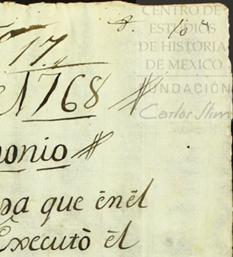 8.
17
1768
CENTRO DE
ESTUDIOS
DE HISTORIA
DE MEXICO
FUNDACIÓN
Carlos Slim
onio
que ènèl
Executò èl